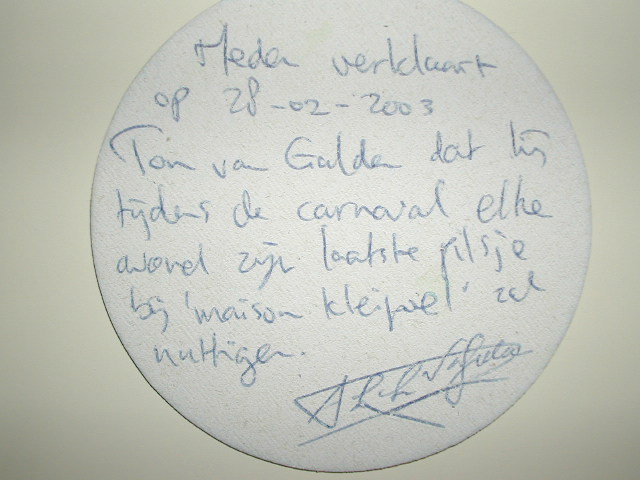 Heden verklaart
op 28-02-2003
Ton van Galder dat hij
tijdens de carnaval elke
avond zijn laatste pilsje
bij 'maison kleipiel' zal
nuttigen.